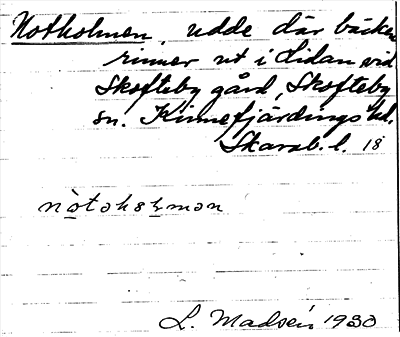 Notholmen, udde där bäcken
rinner ut i Lidan vid
Skofteby gård, Skofteby
sn. Kinnefjärdings hd.
Skarab. l. 18
L. Madsén 1930